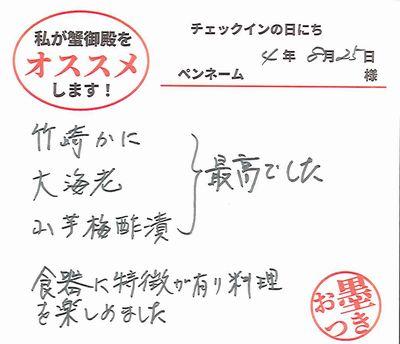 私が蟹御殿を
オススメ
します！
チェックインの日にち
4年 8月25日
ペンネーム 様
竹崎かに
大海老
山芋梅酢漬
最高でした
食器に特徴が有り料理
を楽しめました
お墨つき